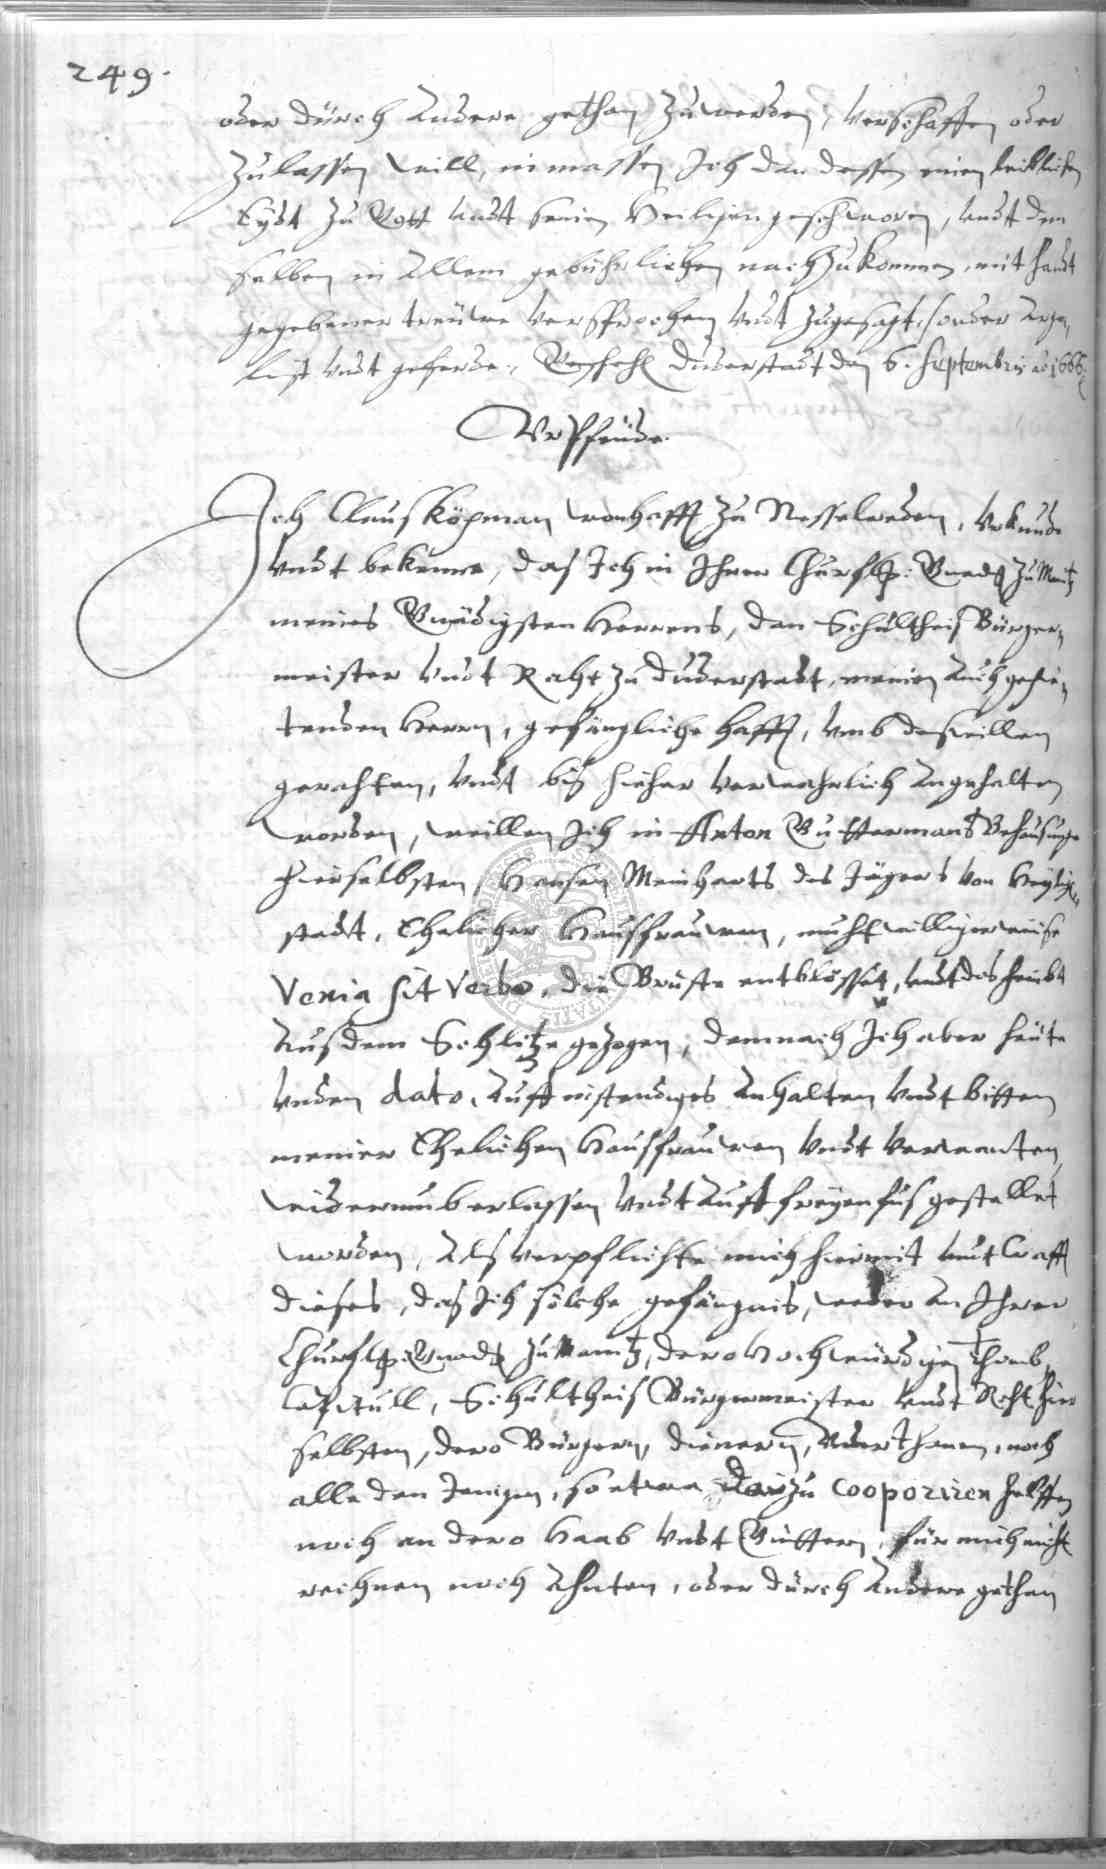 249.
oder durch Andere gethan zuwerden, verschaffen oder
Zulassen will, inmassen Ich dan dessen einen leiblichen
Eydt zu Gott undt seinen Heiligen geschworen, undt dem
selben in Allem gebührlichen nachzukommen, mit handt
gegebener treuwe versprochen undt zugesagt, sonder Arge
list undt geferde. Geschehn Duderstadt den 6. Septembris ao 1666.
Urpheude.
Ich Claus Köpman wonhafft zu Nesselreden, Urkunde
undt bekenne, das Ich in Ihrer Churfl. Gnad. zu Meintz
meines Gnädigsten Herrens, dan Schultheis Bürger
meister undt Raht zu Duderstadt, meinen Auch gepie
tenden Herrn, gefängliche hafft, umb deswillen
gerahten, undt bis hieher verwahrlich Angehalten
worden, weillen Ich in Anton Gustermans Behausunge
hierselbsten, Hansen Meinharts des Jägers von Heylig
stadt, Ehelicher Hausfrauwen, muhtwilliger weise
Venia sit Verbo, die Brüste entblösset, undt das heubt
Aus dem Schlitze gezogen, demnach Ich aber heute
unden dato, Auff instendiges Anhalten undt bitten
meiner Ehelichen Hausfrauwen undt verwanten,
widerumb erlassen undt Auff freyen fus gestellet
worden, Als verpflichte mich hiermit undt Crafft
dieses, das Ich solche gefängnis, weder An Ihrer
Churfl. Gnad. zu Maintz, dero Hochwürdigen Thumb
Capitull, Schultheis Bürgermeister undt Raht hier
selbsten, dero Bürgern, dienern, Underthanen, noch
alle den Jenigen, so etwa darzu cooperiren helffen
noch an dero Haab undt Güttern, für mich nicht
rechnen noch Ahnten, oder durch Andere gethan